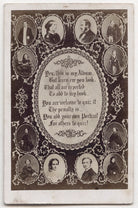 Yes, this is my Album,
But learn ere you look,
That all are expected
To add to my book.
You are welcome to quiz it
The penalty is,
You add your own Portrait
For others to quiz!